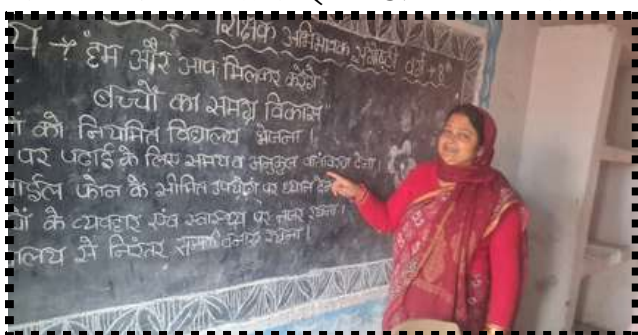 शिक्षक अभिभावक संगोष्ठी वर्ग - 8
य → "हम और आप मिलकर करेंगे
बच्चों का समग्र विकास"
ों को नियमित विद्यालय भेजना।
पर पढ़ाई के लिए समय व अनुकूल वातावरण देना।
ाईल फोन के सीमित उपयोग पर ध्यान देना
ों के व्यवहार एवं स्वास्थ्य पर नजर रखना।
ालय से निरंतर सम्पर्क बनाए रखना।